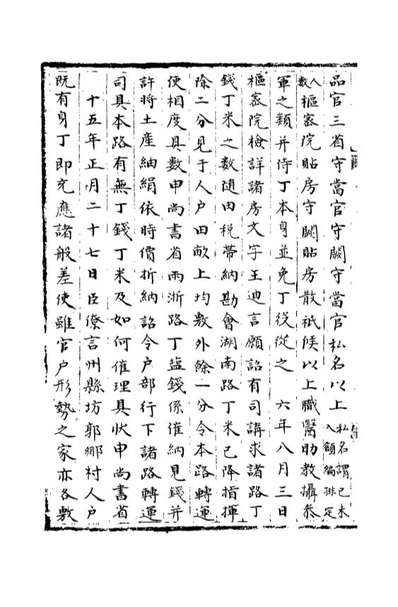 品官三省守當官守闕守當官私名以上私名謂已未入額編排定
人數樞密院貼房守闕貼房散祗候以上職醫助教攝叅
軍之類并侍丁本身並免丁役從之　六年八月三日
樞密院檢詳諸房文字王迪言願詔有司講求諸路丁
錢丁米之數随田稅帶納勘會湖南路丁米已降指揮
除二分見于人戶田畝上均敷外餘一分令本路轉運
使相度具數申尚書省兩浙路丁鹽錢係催納見錢并
許時土産紬絹依時價折納詔令戶部行下諸路轉運
司具本路有無丁錢丁米及如何催理具狀申尚書省
十五年正月二十七日臣僚言州縣坊郭鄉村人戶
既有身丁即充應諸般差使雖官戶形勢之家亦各敷